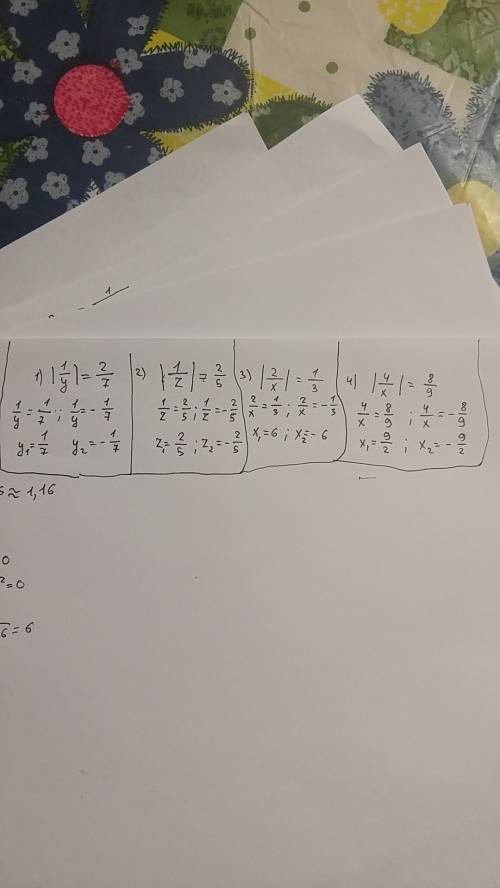 1
1) |1/y| = 2/7
1/y = 1/7; 1/y = -1/7
y₁ = 1/7 y₂ = -1/7
2) |1/z| = 2/5
1/z = 2/5; 1/z = -2/5
z₁ = 2/5; z₂ = -2/5
3) |2/x| = 1/3
2/x = 1/3; 2/x = -1/3
x₁ = 6; x₂ = -6
4) |4/x| = 8/9
4/x = 8/9; 4/x = -8/9
x₁ = 9/2; x₂ = -9/2
6 ≈ 1,16
0
² = 0
6 = 6